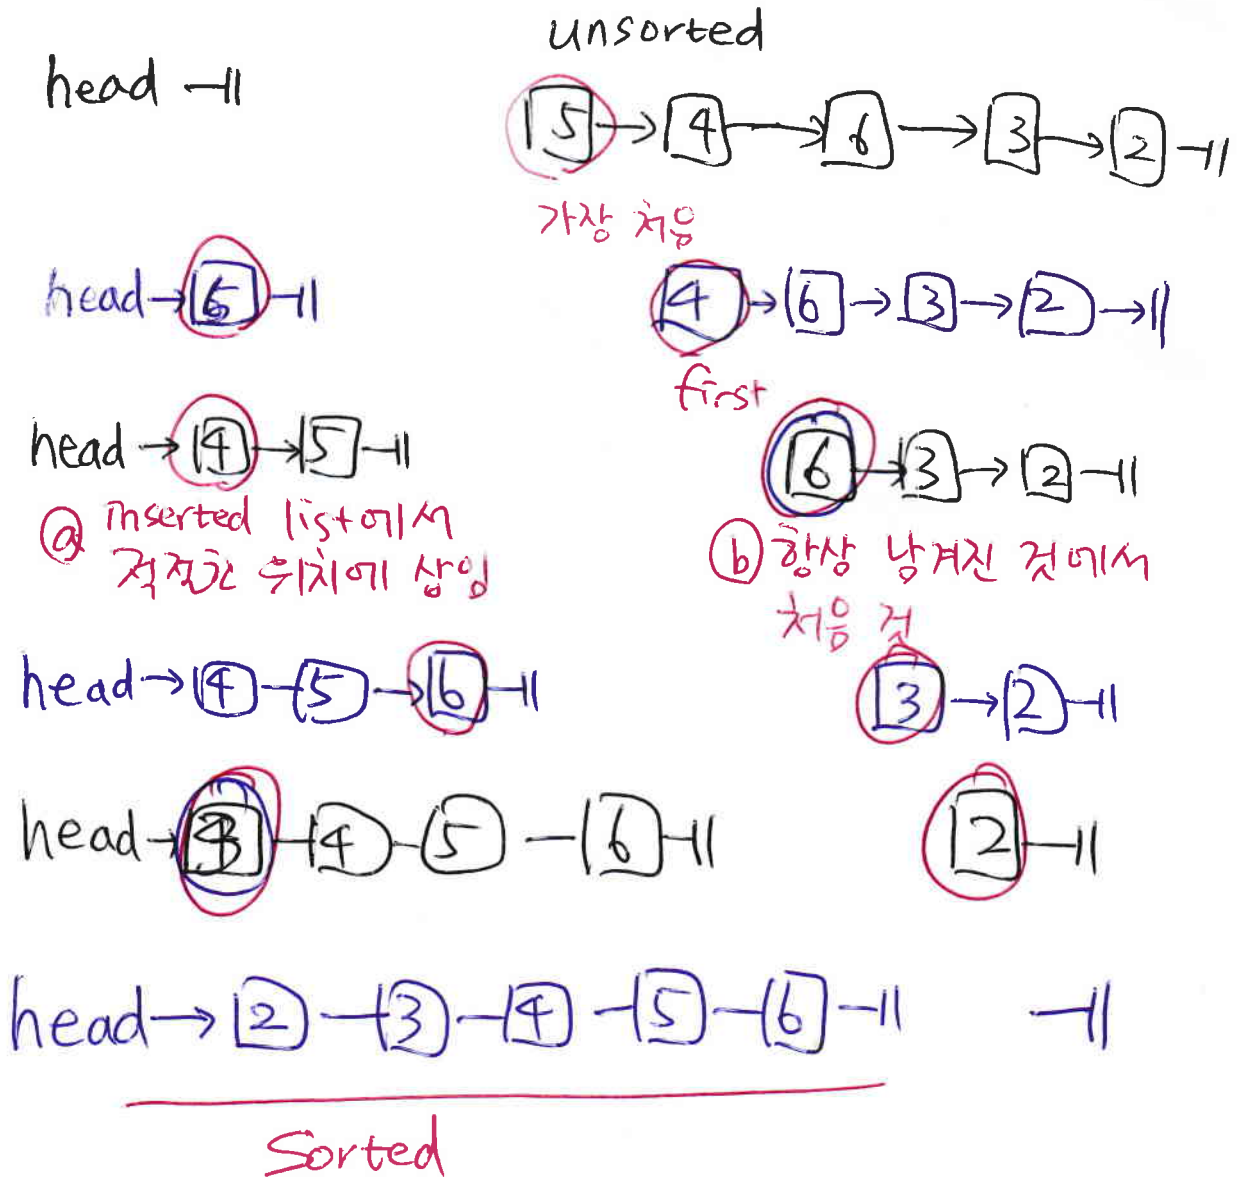 unsorted
head
5 4 6 3 2
가장 처음
head 5
4 6 3 2
first
head 4 5
6 3 2
ⓐ inserted list에서
적절한 위치에 삽입
ⓑ 항상 남겨진 것에서
처음 것
head 4 5 6
3 2
head 3 4 5 6
2
head 2 3 4 5 6
Sorted